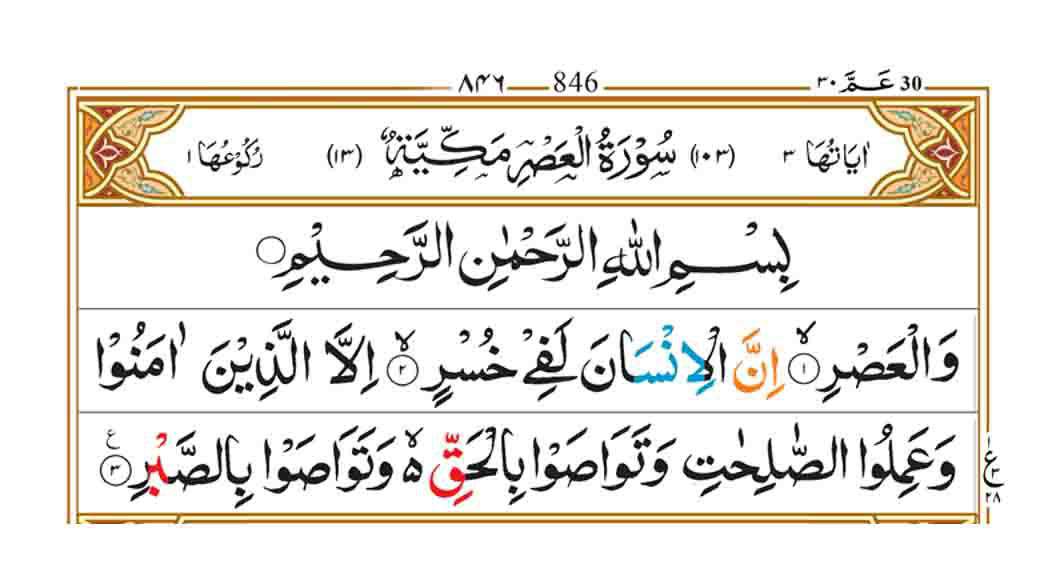 ۸۴۶ 846 ۳۰ عَـمَّ 30
اٰيَاتُهَا ۳ (۱۰۳) سُوْرَةُ الْعَصْرِ مَكِّيَّةٌ (۱۳) رُكُوْعُهَا ۱
بِسْمِ اللّٰهِ الرَّحْمٰنِ الرَّحِيْمِ
وَالْعَصْرِ ۙ﴿۱﴾ اِنَّ الْاِنْسَانَ لَفِيْ خُسْرٍ ۙ﴿۲﴾ اِلَّا الَّذِيْنَ اٰمَنُوْا
وَعَمِلُوا الصّٰلِحٰتِ وَتَوَاصَوْا بِالْحَقِّ ۵ۙ وَتَوَاصَوْا بِالصَّبْرِ ﴿۳﴾ ع
ع ۳ ۲۸